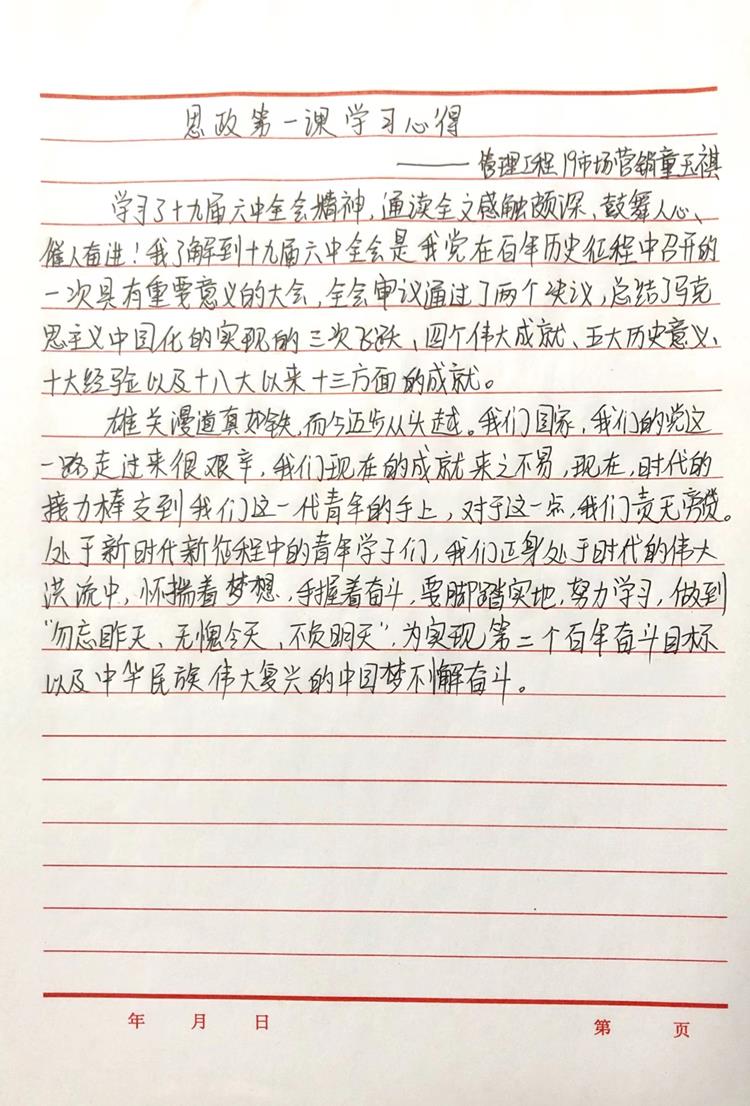 思政第一课学习心得
——管理工程19市场营销童玉祺
学习了十九届六中全会精神,通读全文感触颇深、鼓舞人心、
催人奋进!我了解到十九届六中全会是我党在百年历史征程中召开的
一次具有重要意义的大会,全会审议通过了两个决议,总结了马克
思主义中国化的实现的三次飞跃、四个伟大成就、五大历史意义、
十大经验以及十八大以来十三方面的成就。
雄关漫道真如铁,而今迈步从头越。我们国家,我们的党这
一路走过来很艰辛,我们现在的成就来之不易,现在,时代的
接力棒交到我们这一代青年的手上,对于这一点,我们责无旁贷。
处于新时代新征程中的青年学子们,我们正身处于时代的伟大
洪流中,怀揣着梦想,手握着奋斗,要脚踏实地,努力学习,做到
“勿忘昨天、无愧今天、不负明天”,为实现第二个百年奋斗目标
以及中华民族伟大复兴的中国梦不懈奋斗。
年 月 日 第 页